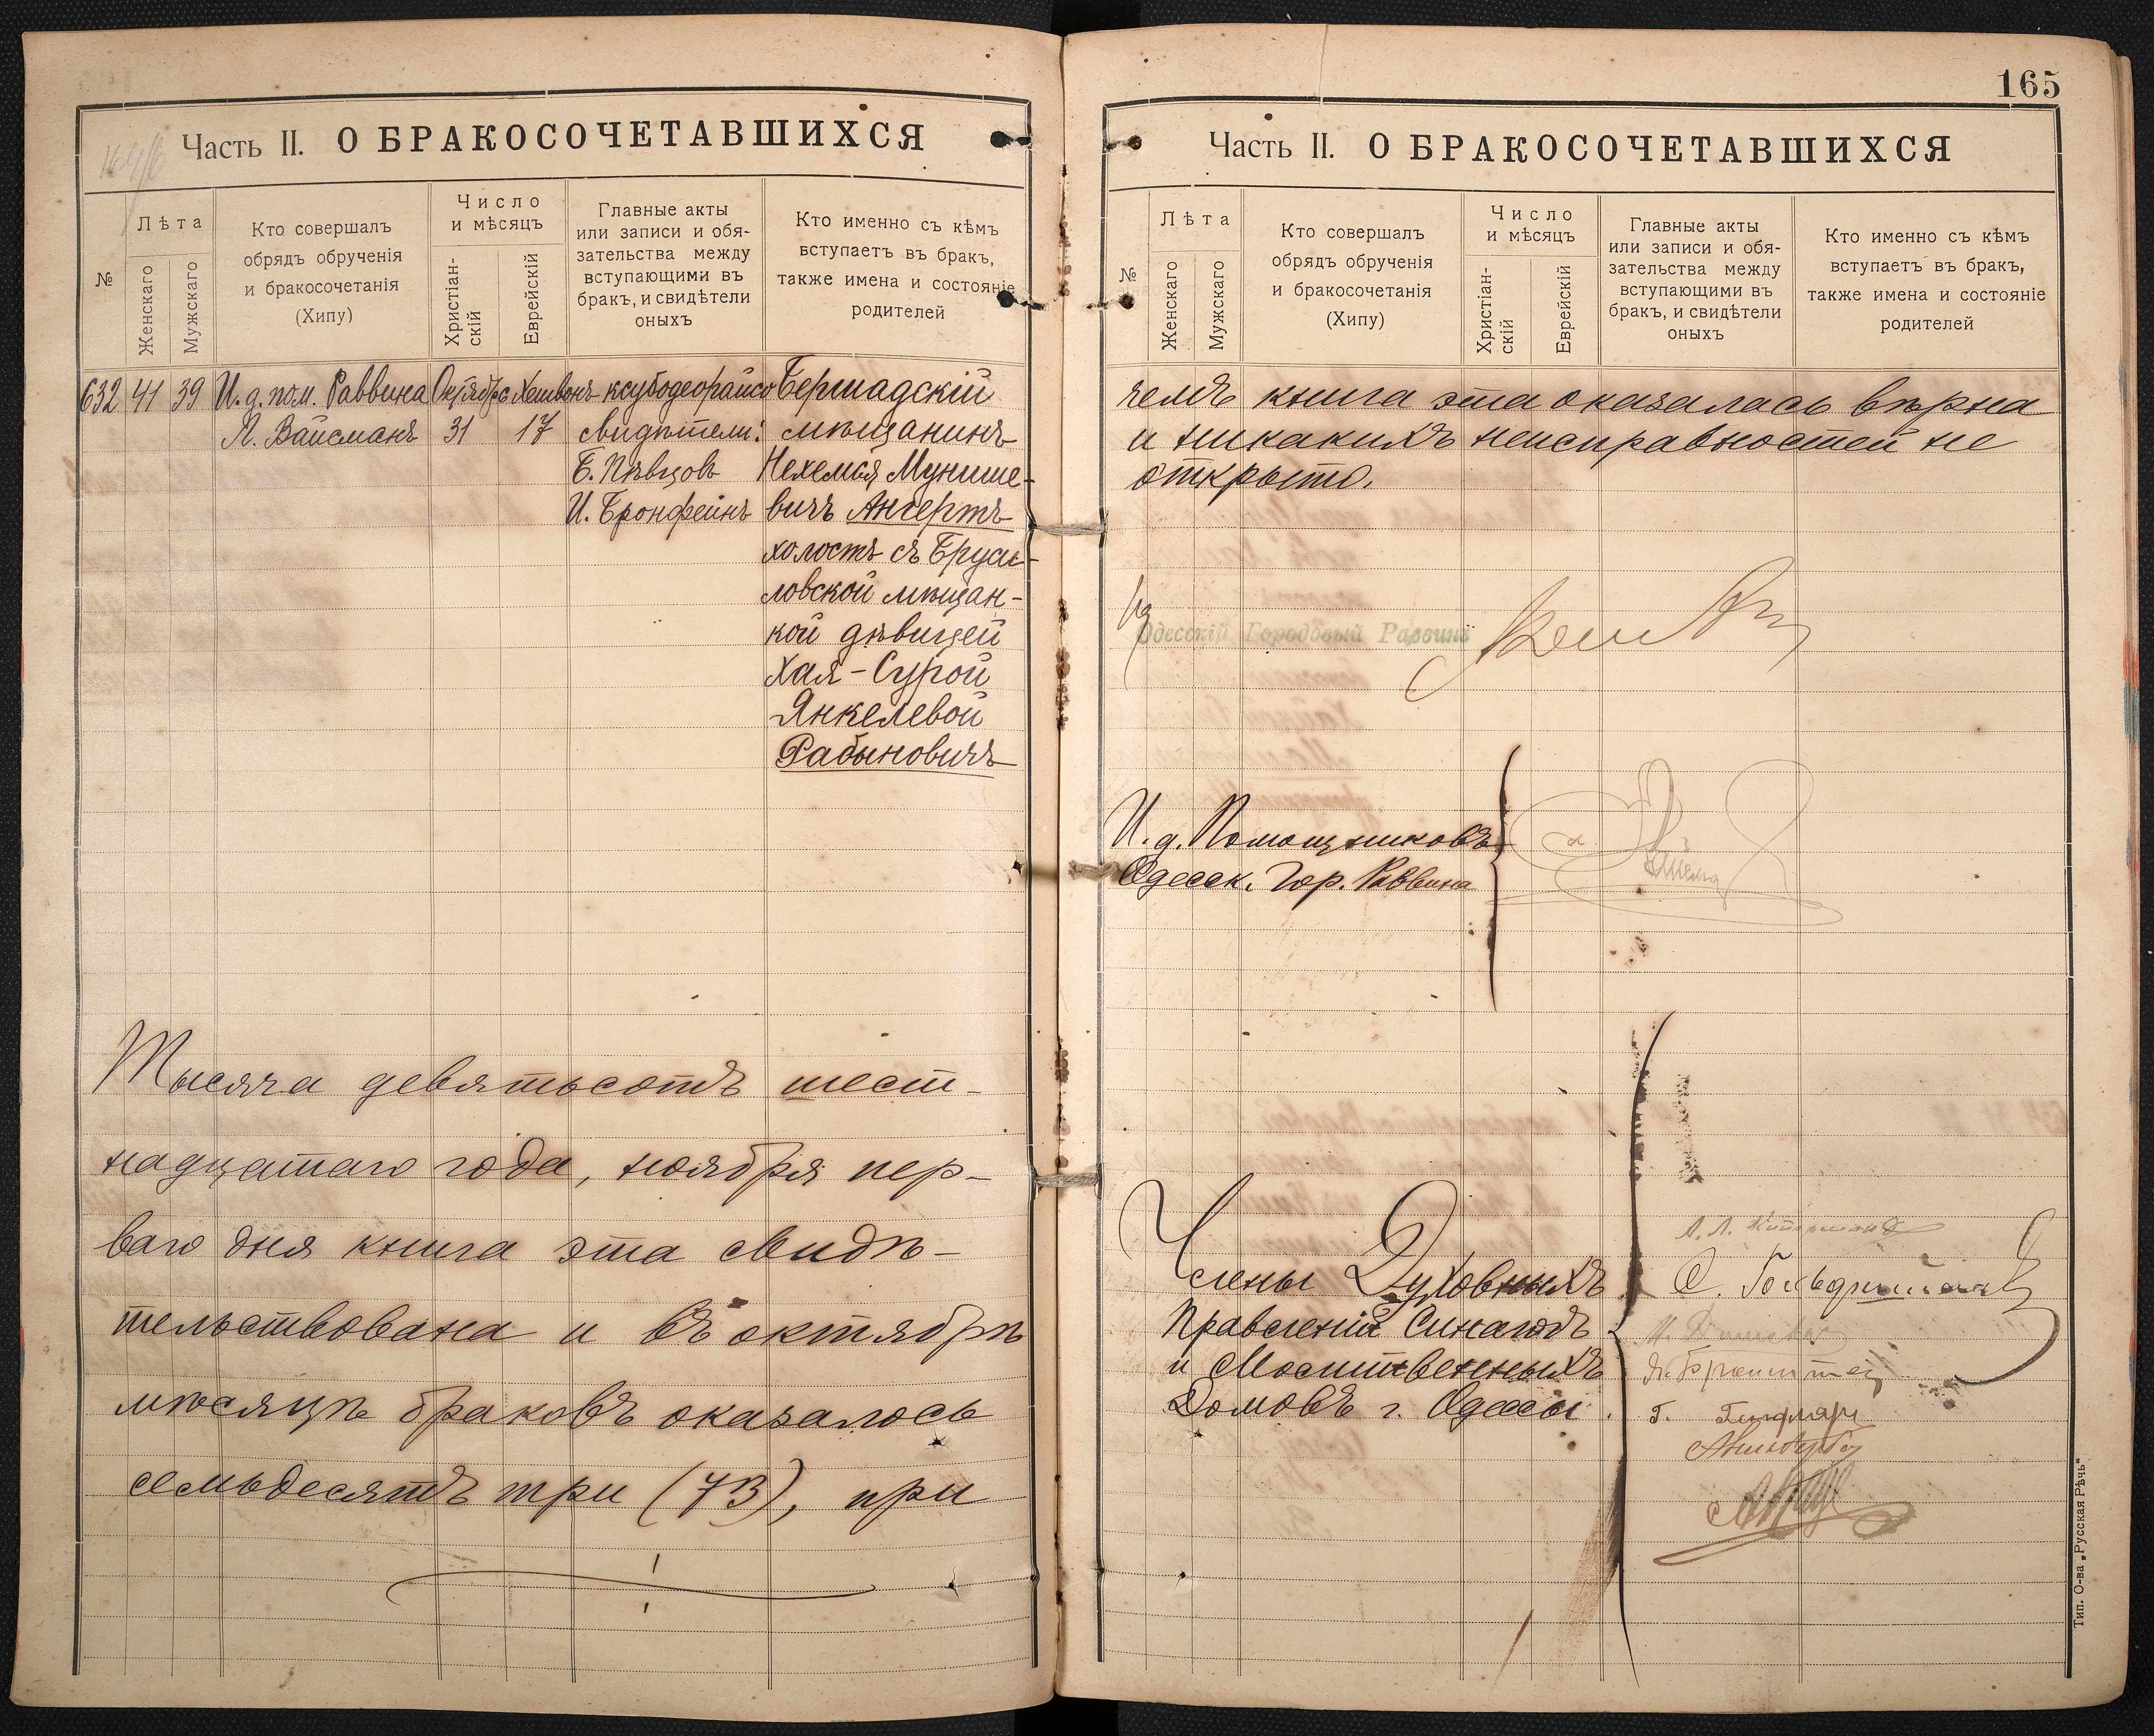 Часть II. О БРАКОСОЧЕТАВШИХСЯ
№
Лѣта
Женскаго
Мужскаго
Кто совершалъ
обрядъ обрученія
и бракосочетанія
(Хипу)
Число
и мѣсяцъ
Христіан-
скій
Еврейскій
Главные акты
или записи и обя-
зательства между
вступающими въ
бракъ, и свидѣтели
оныхъ
Кто именно съ кѣмъ
вступаетъ въ бракъ,
также имена и состояніе
родителей
632 41 39 И. д. пом. Раввина Октябрь Хешвонъ ксубодеорайсо Бершадскій
Л. Вайсманъ 31 17 свидѣтели: мѣщанинъ
Б. Пѣвцовъ Нехемья Мунише-
И. Бронфейнъ вичъ Ангертъ
холостъ съ Бруси-
ловской мѣщан-
кой дѣвицей
Хая-Сурой
Янкелевой
Рабыновичъ
Тысяча девятьсотъ шест-
надцатаго года, ноября пер-
ваго дня книга эта свидѣ-
тельствована и въ октябрѣ
мѣсяцѣ браковъ оказалось
семьдесятъ три (73), при
165
Часть II. О БРАКОСОЧЕТАВШИХСЯ
№
Лѣта
Женскаго
Мужскаго
Кто совершалъ
обрядъ обрученія
и бракосочетанія
(Хипу)
Число
и мѣсяцъ
Христіан-
скій
Еврейскій
Главные акты
или записи и обя-
зательства между
вступающими въ
бракъ, и свидѣтели
оныхъ
Кто именно съ кѣмъ
вступаетъ въ бракъ,
также имена и состояніе
родителей
чемъ книга эта оказалась вѣрна
и никакихъ неисправностей не
открыто.
Одесскій Городовый Раввинъ
И. д. Помощниковъ
Одесск. Гор. Раввина
Члены Духовныхъ
Правленій Синагогъ
и Молитвенныхъ
Домовъ г. Одессы.
Тип. О-ва „Русская Рѣчь“